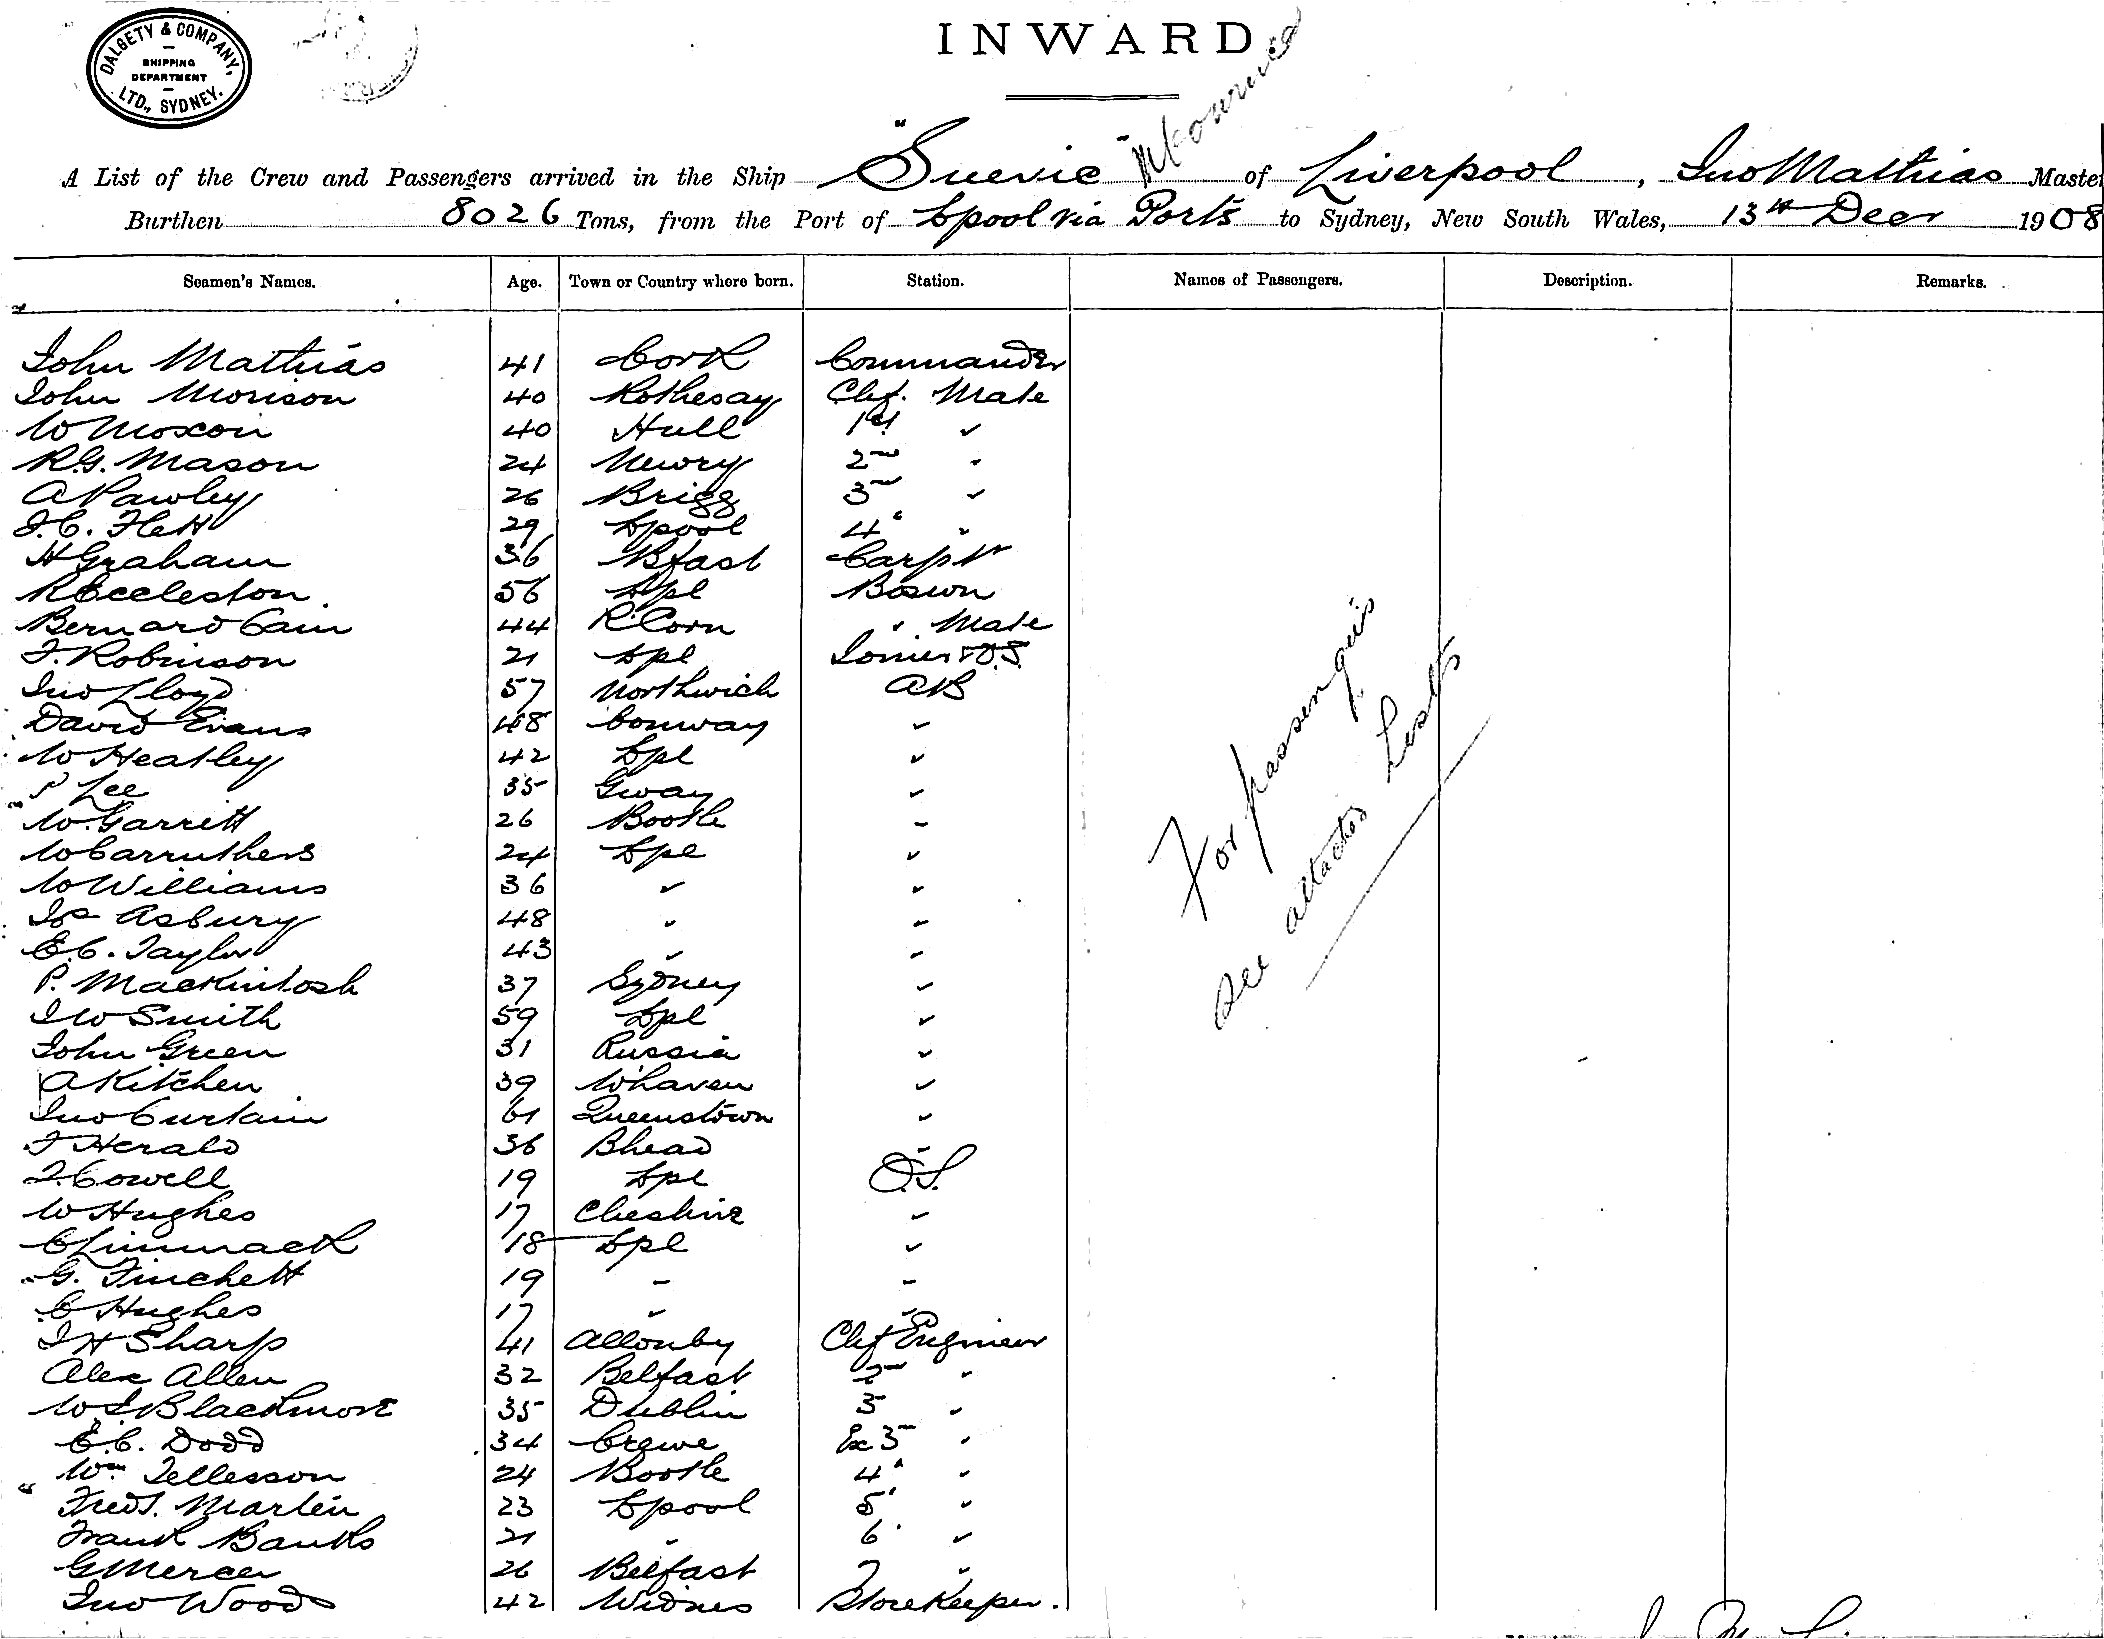 DALGETY & COMPANY,
SHIPPING
DEPARTMENT
LTD., SYDNEY.
INWARD.
A List of the Crew and Passengers arrived in the Ship "Suevic" of Liverpool, Jno Mathias Master
Burthen 8026 Tons, from the Port of Lpool via Ports to Sydney, New South Wales, 13th Decr 1908
Seamen's Names. Age. Town or Country where born. Station. Names of Passengers. Description. Remarks.
John Mathias 41 Cork Commander
John Morison 40 Rothesay Chf. Mate
W Moxon 40 Hull 1st "
R.G. Mason 24 Newry 2nd "
A Pawley 26 Brigg 3rd "
J.C. Flett 29 Lpool 4 "
H Graham 36 Bfast Carptr
R Eccleston 56 Lpl Boswn
Bernard Cain 44 R.Corn " Mate
J. Robinson 21 Lpl & O.S.
Jno Lloyd 57 Northwich AB
David Evans 48 Conway "
W Heatley 42 Lpl "
P Lee 35 Gway "
W. Garrett 26 Bootle "
W Carruthers 24 Lpl "
W Williams 36 " "
Jos Asbury 48 " "
E.C. Taylor 43 " "
P. Mackintosh 37 Sydney "
J W Smith 59 Lpl "
John Green 31 Russia "
A Kitchen 39 W'haven "
Jno Curtain 61 Queenstown "
J Herald 36 Bhead "
J. Cowell 19 Lpl O.S.
W Hughes 17 Cheshire "
C Limmack 18 Lpl "
G. Finchett 19 " "
C Hughes 17 " "
J H Sharp 41 Allonby Chf Engineer
Alex Allen 32 Belfast 2nd "
W J Blackmore 35 Dublin 3 "
E.C. Dodd 34 Crewe Ex 3rd "
Wm Tellesson 24 Bootle 4 "
Fredk. Martin 23 Lpool 5 "
Frank Banks 21 " 6 "
G Mercer 26 Belfast 7 "
Jno Woods 42 Widnes Storekeeper.
For passengers
see attached Lists